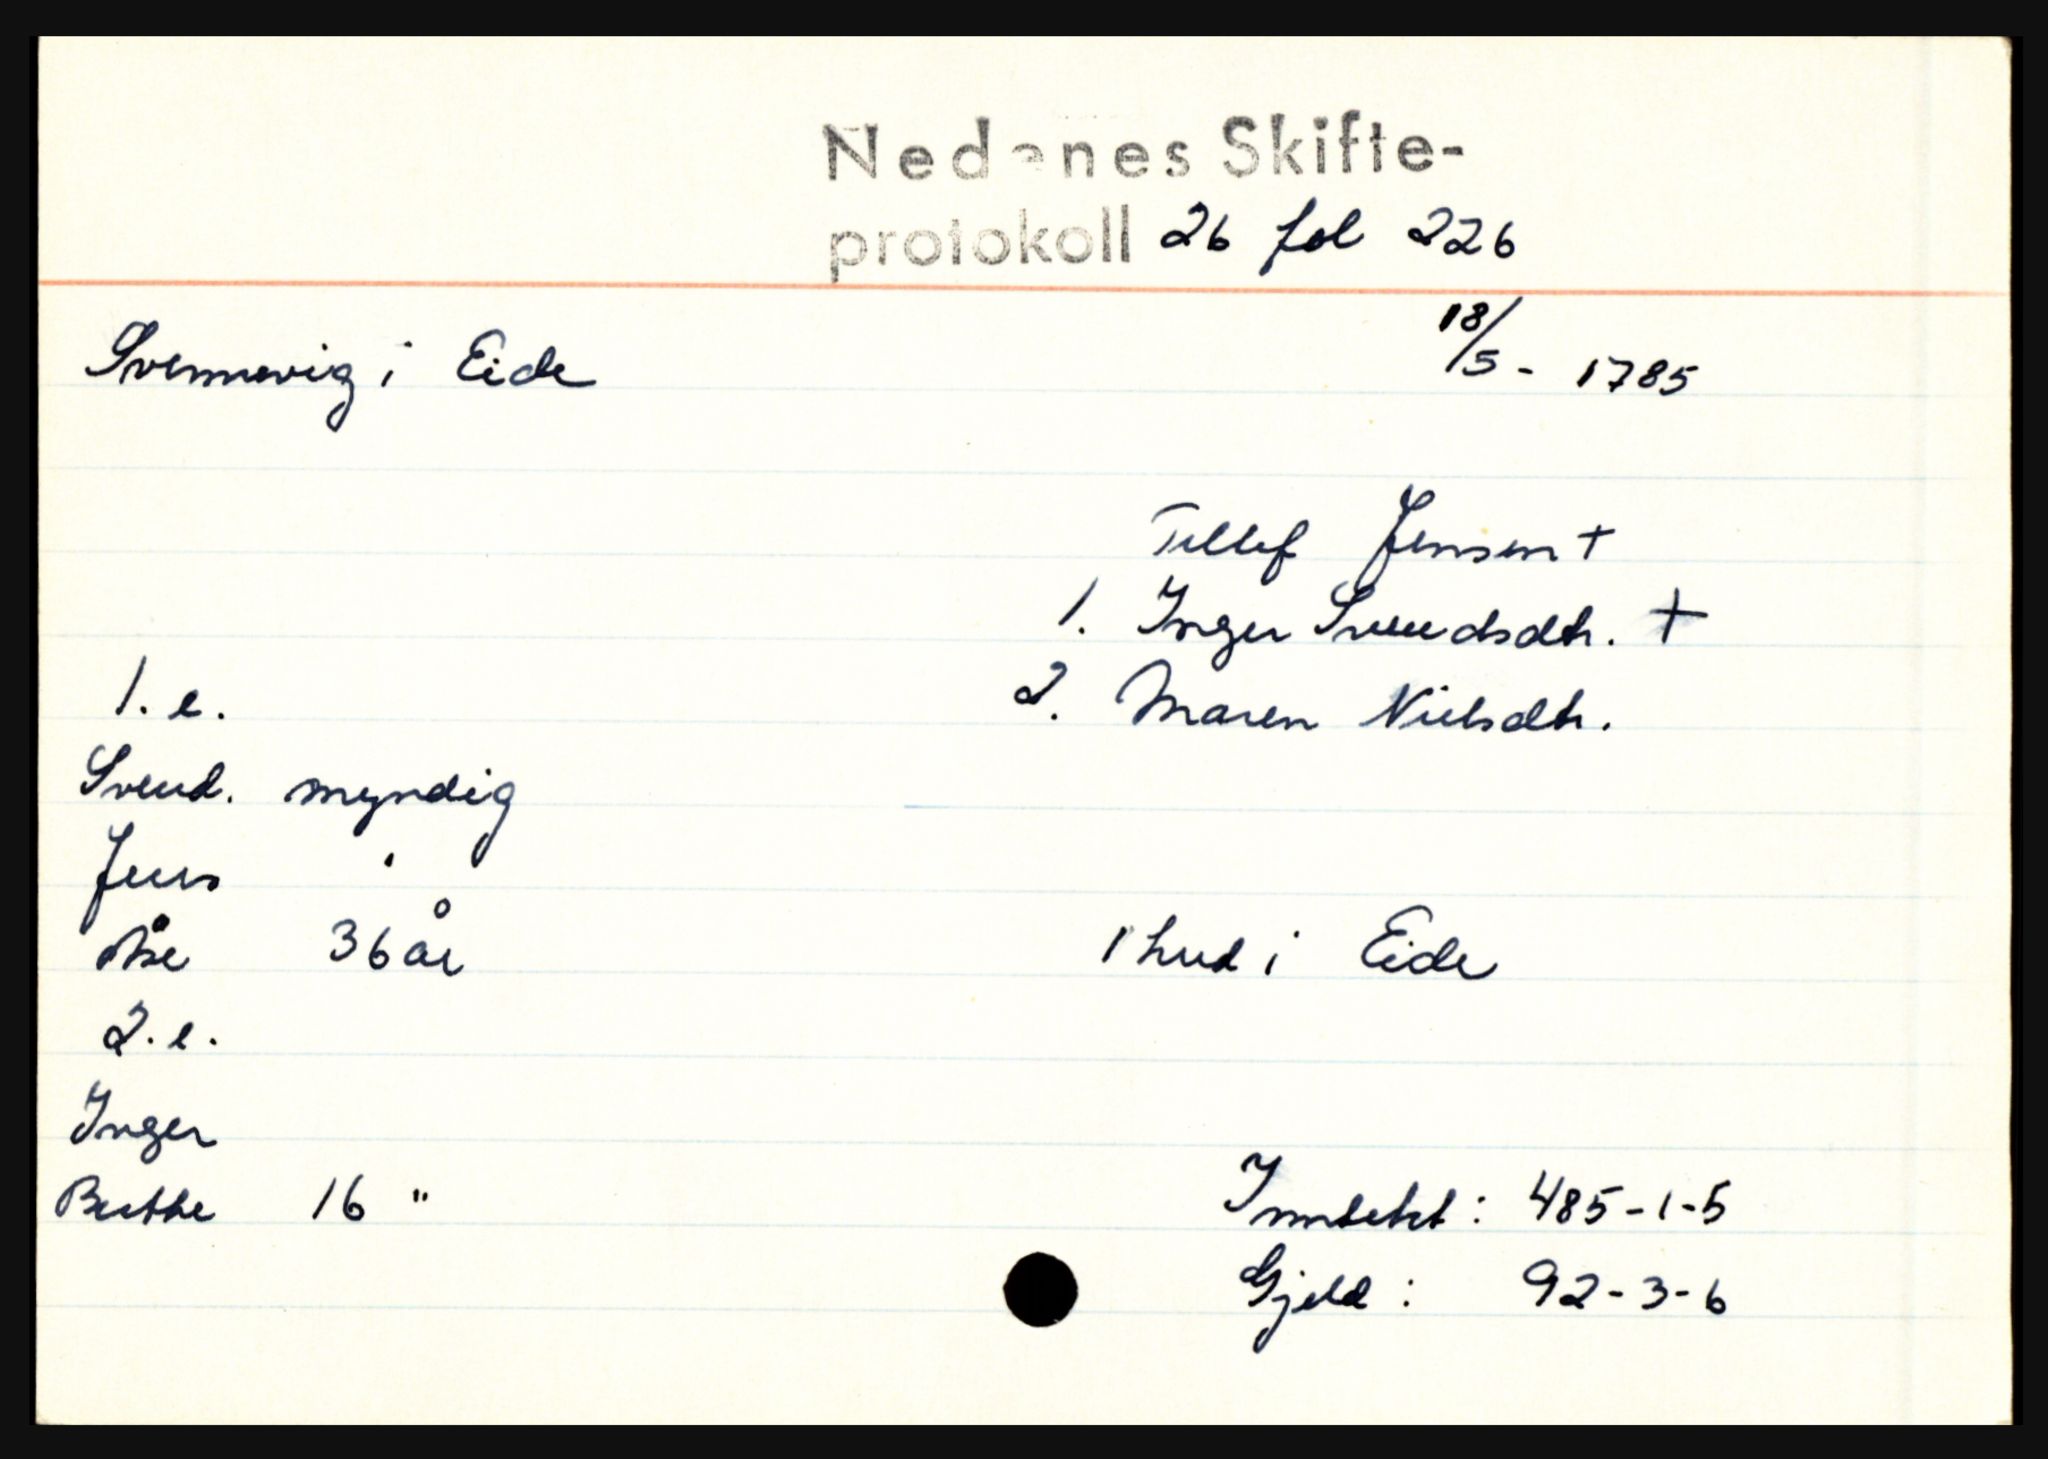 Nedenes Skifte-
protokoll 26 fol 226
Svennevig i Eide 18/5 - 1785
Tellef Jensen +
1. Inger Svendsdtr. +
1. e. 2. Maren Nielsdtr.
Svend. myndig
Jens "
Åse 36 år 1 hud i Eide
2. e.
Inger
Berthe 16 " Inntekt: 485-1-5
Gjeld: 92-3-6